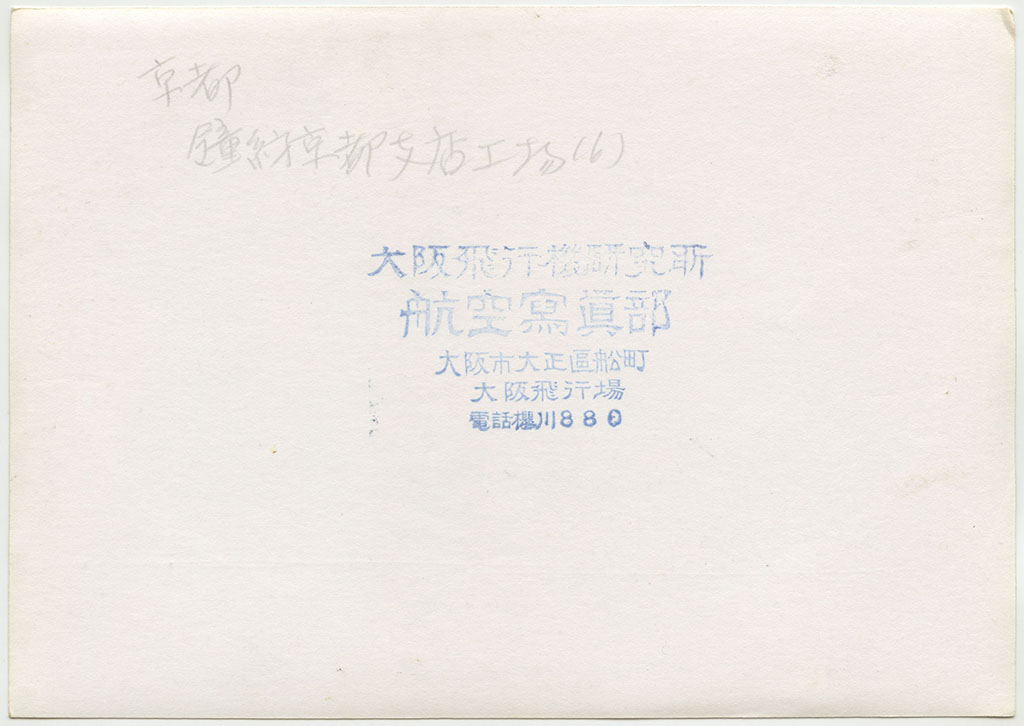 京都
鐘紡京都支店工場(6)
大阪飛行機研究所
航空寫眞部
大阪市大正區船町
大阪飛行場
電話櫻川880